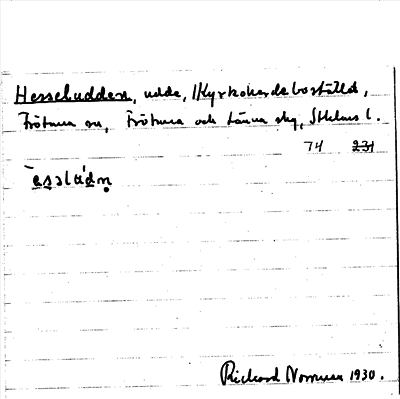 Hesseludden, udde, Kyrkoherdebostället,
Frötuna sn, Frötuna och Länna skg, Sthlms l.
74 231
Richard Norrman 1930.